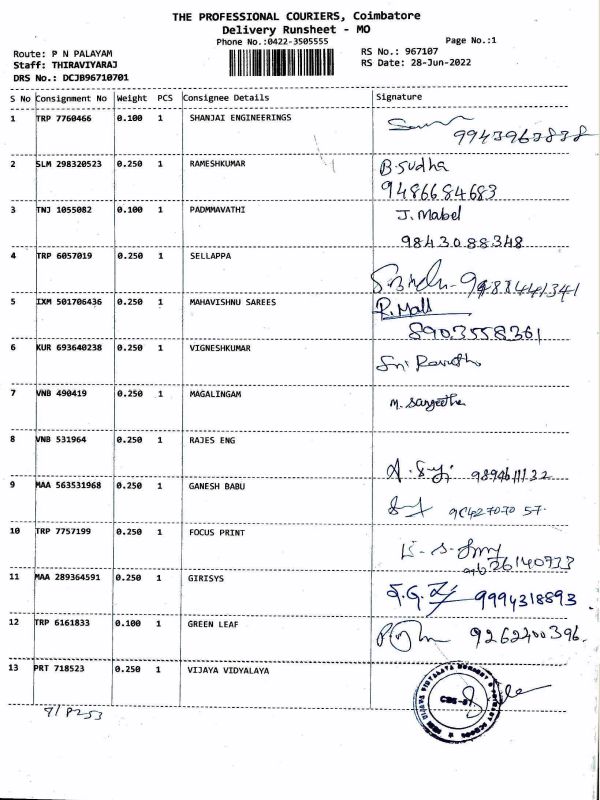 THE PROFESSIONAL COURIERS, Coimbatore
Delivery Runsheet - MO
Phone No.:0422-3505555 Page No.:1
Route: P N PALAYAM RS No.: 967107
Staff: THIRAVIYARAJ RS Date: 28-Jun-2022
DRS No.: DCJB96710701
S No Consignment No Weight PCS Consignee Details Signature
1 TRP 7760466 0.100 1 SHANJAI ENGINEERINGS
9943963838
2 SLM 298320523 0.250 1 RAMESHKUMAR B.Sudha
9486684683
3 TNJ 1055082 0.100 1 PADMMAVATHI J. Mabel
9843088348
4 TRP 6057019 0.250 1 SELLAPPA
5 IXM 501706436 0.250 1 MAHAVISHNU SAREES
8903558361
6 KUR 693640238 0.250 1 VIGNESHKUMAR
7 VNB 490419 0.250 1 MAGALINGAM M. Sangeetha
8 VNB 531964 0.250 1 RAJES ENG
9894611132
9 MAA 563531968 0.250 1 GANESH BABU
9042707057.
10 TRP 7757199 0.250 1 FOCUS PRINT
11 MAA 289364591 0.250 1 GIRISYS
9994318893
12 TRP 6161833 0.100 1 GREEN LEAF
9262400396.
13 PRT 718523 0.250 1 VIJAYA VIDYALAYA